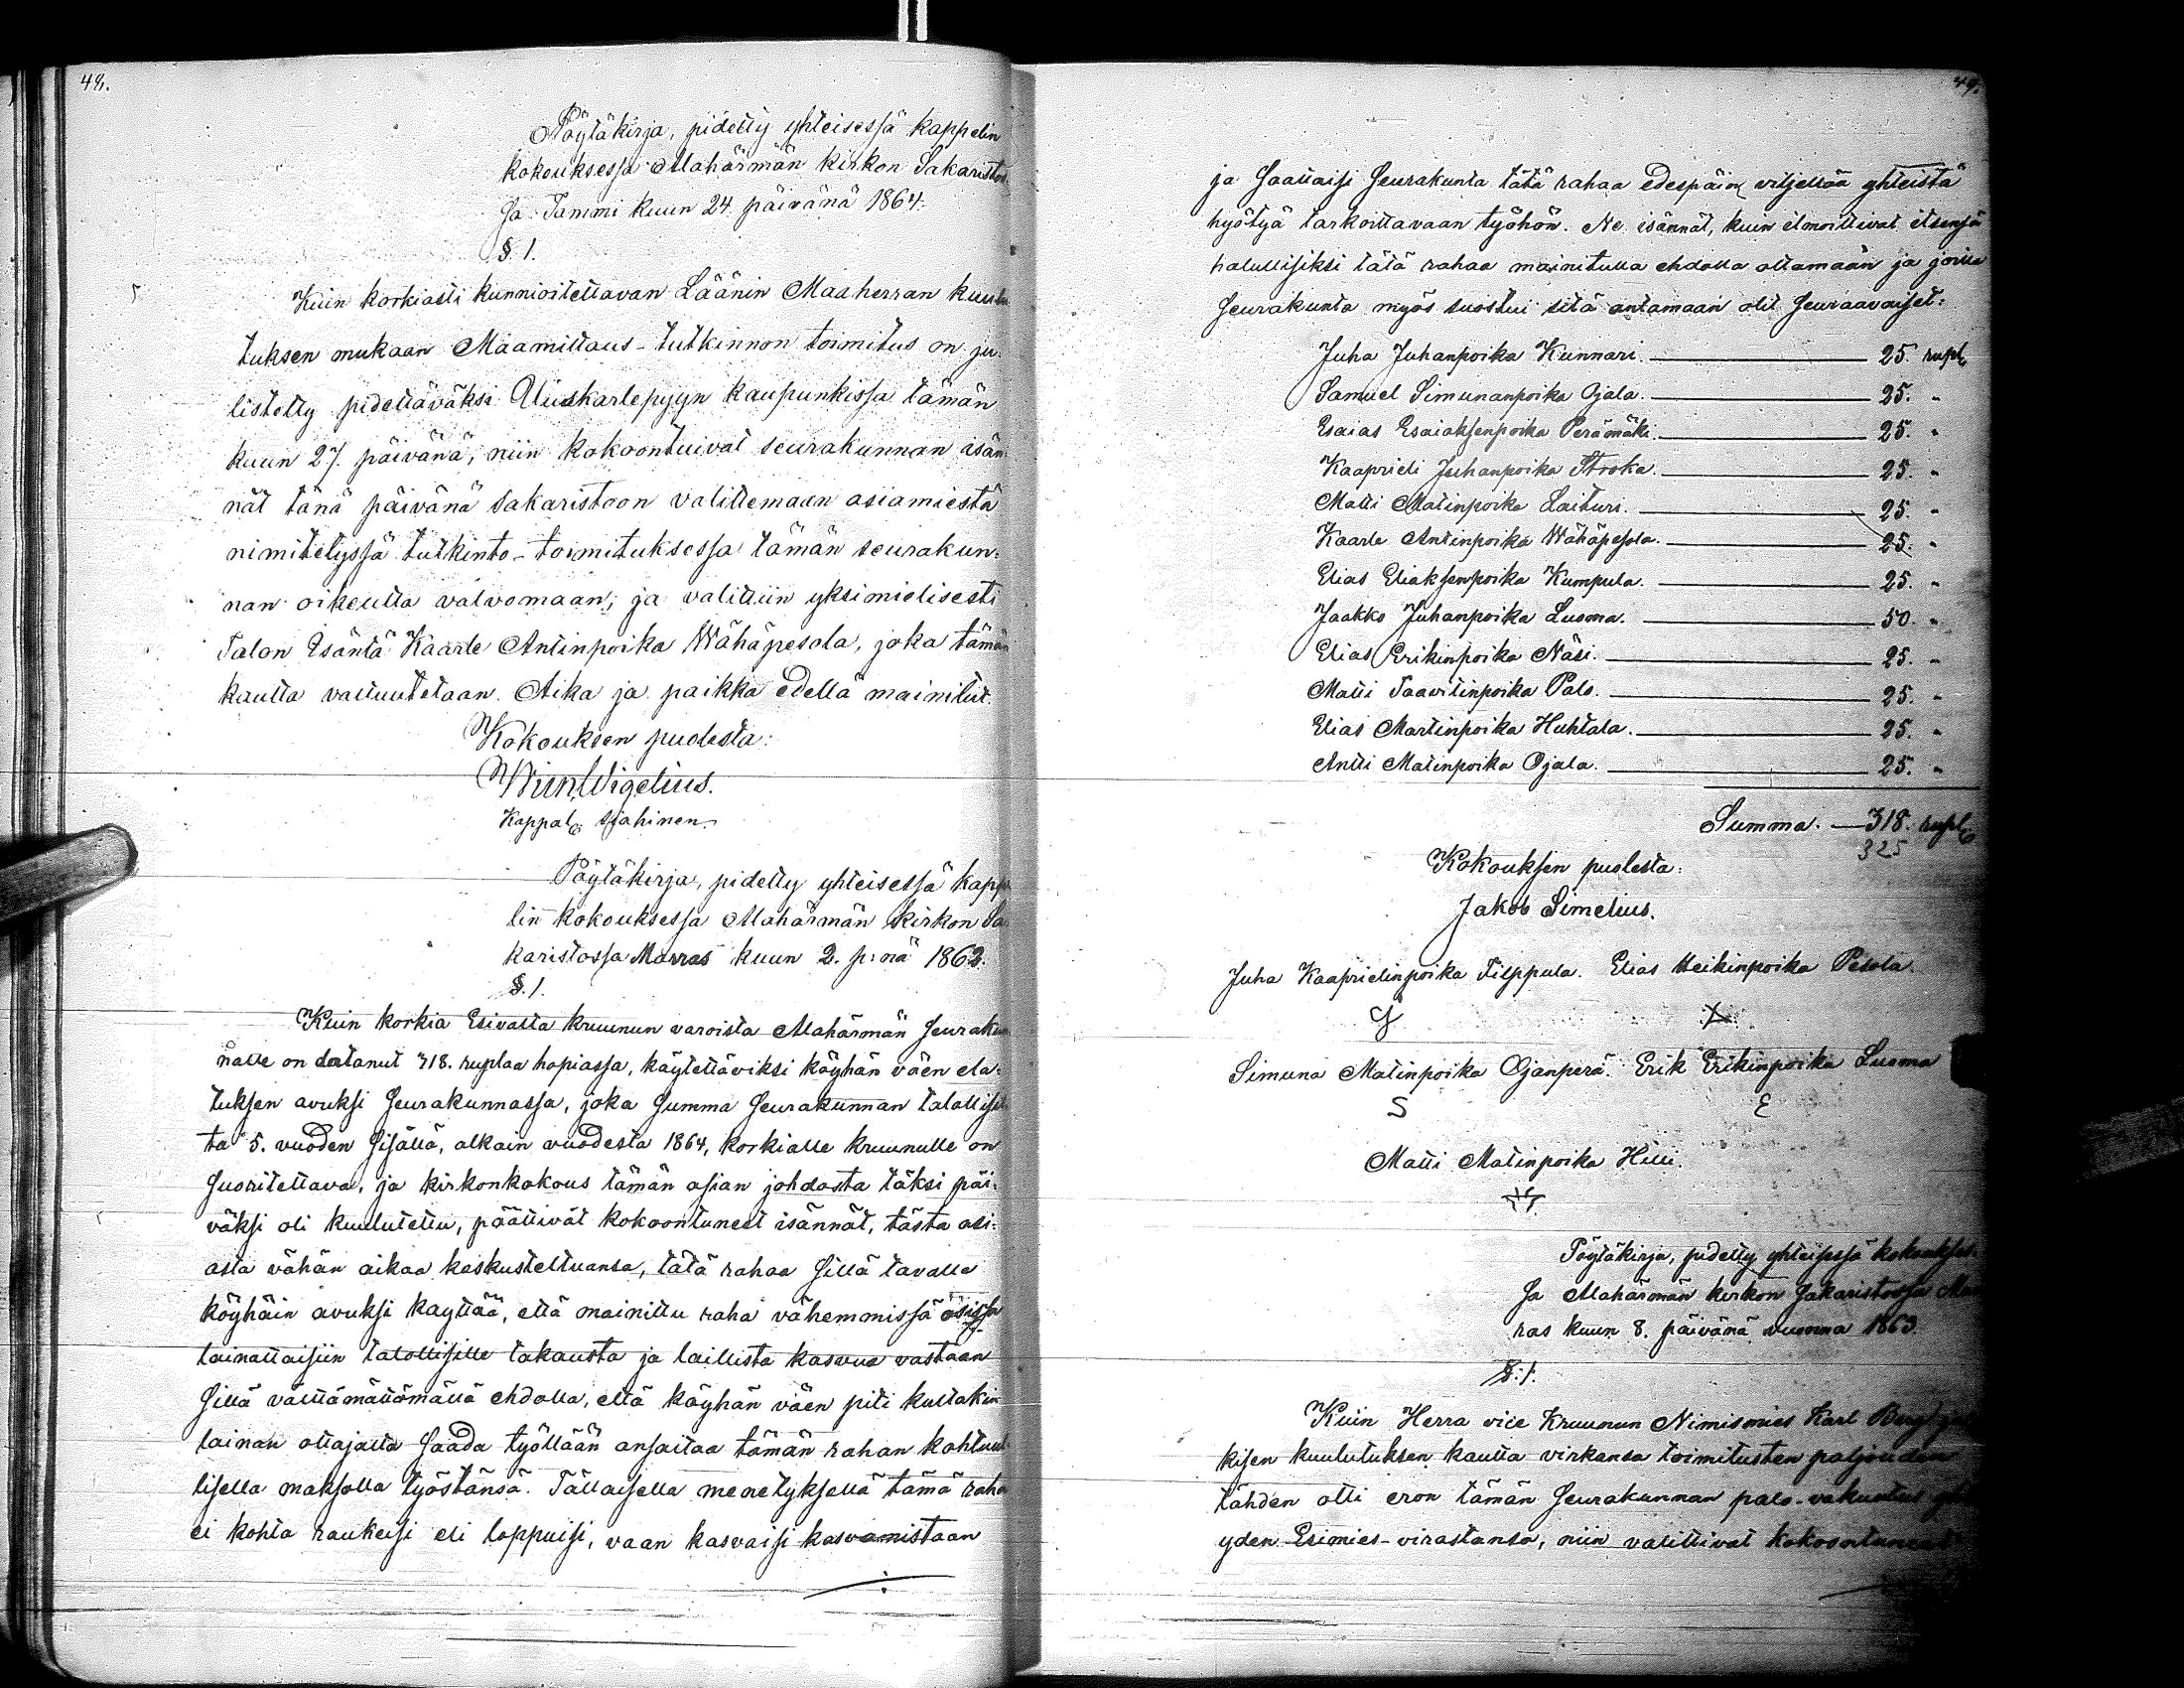 48.
Pöytäkirja, pidetty yhteisessä kappelin
kokouksessa Alahärmän kirkon Sakaristos
sa Tammi kuun 24 päivänä 1864.
§ 1.
Kuin korkiasti kunnioitettavan Läänin Maaherran kuulu
tuksen mukaan Maamittaus-tutkinnon toimitus on ju-
listetty pidettäväksi Uuskarlepyyn kaupunkissa tämän
kuun 27. päivänä, niin kokoontuivat seurakunnan isän-
nät tänä päivänä Sakaristoon valittemaan asiamiestä
nimitetyssä tutkinto-toimituksessa tämän seurakun-
nan oikeutta valvomaan; ja valittiin yksimielisesti
Talon Isäntä Kaarle Antinpoika Wähäpesola, joka tämän
kautta valtuutetaan. Aika ja paikka edellä mainitut.
Kokouksen puolesta:
Wilh. Wigelius.
Kappal. siahinen.
Pöytäkirja, pidetty yhteisessä kappe
lin kokouksessa Alahärmän kirkon Sa
karistossa Marras kuun 2. p:nä 1862.
§. 1.
Kuin korkia Esivalta kruunun varoista Alahärmän seurakun
nalle on datanut 318. ruplaa hopiassa, käytettäviksi köyhän väen ela-
tuksen avuksi seurakunnassa, joka summa seurakunnan talollisil
ta 5. vuoden sisällä, alkain vuodesta 1864, korkialle kruunulle on
suoritettava, ja kirkonkokous tämän asian johdosta täksi päi-
väksi oli kuulutettu, päättivät kokoontuneet isännät, tästä asi-
asta vähän aikaa keskusteltuansa, tätä rahaa sillä tavalla
köyhäin avuksi kayttää, että mainittu raha vähemmissä osissa
lainattaisiin talollisille takausta ja laillista kasvua vastaan
sillä välttämättömällä ehdolla, että köyhän väen piti kultakin
lainan ottajalta saada työllään ansaitaa tämän rahan kohtuul-
lisella maksolla työstänsä. Tällaisella menetyksellä tämä raha
ei kohta raukeisi eli loppuisi, vaan kasvaisi kasvamistaan
49.
ja saattaisi seurakunta tätä rahaa edespäin viljellää yhteistä
hyötyä tarkoittavaan työhön. Ne isännät, kuin ilmoittivat itsensä
halullisiksi tätä rahaa mainitulla ehdolla ottamaan ja joille
seurakunta myös suostui sitä antamaan olit seuraavaiset:
Juha Juhanpoika Kunnari. 25. rupl.
Samuel Simunanpoika Ojala. 25. "
Esaias Esaiaksenpoika Perämäki. 25. "
Kaaprieli Juhanpoika Stooka. 25. "
Matti Matinpoika Laituri. 25. "
Kaarle Antinpoika Wähäpesola. 25. "
Elias Eliaksenpoika Kumpula. 25. "
Jaakko Juhanpoika Luoma. 50. "
Elias Erikinpoika Näsi. 25. "
Matti Taavitinpoika Palo. 25. "
Elias Martinpoika Huhtala. 25. "
Antti Matinpoika Ojala. 25. "
Summa. 318. rupl.
325
Kokouksen puolesta:
Jakob Simelius.
Juha Kaaprielinpoika Filppula. Elias Heikinpoika Pesola.
Simuna Matinpoika Ojanperä. Erik Erikinpoika Luoma
S E
Matti Matinpoika Hilli.
Pöytäkirja, pidetty yhteisessä kokoukses-
sa Alahärmän kirkon Sakaristossa Mar
ras kuun 8. päivänä vuonna 1863.
§. 1.
Kuin Herra vice Kruunun Nimismies Karl Berg
kisen kuulutuksen kautta virkansa toimitusten paljouden
tähden otti eron tämän seurakunnan palo-vakuutus
yden Esimies-virastansa, niin valittivat kokoontuneet